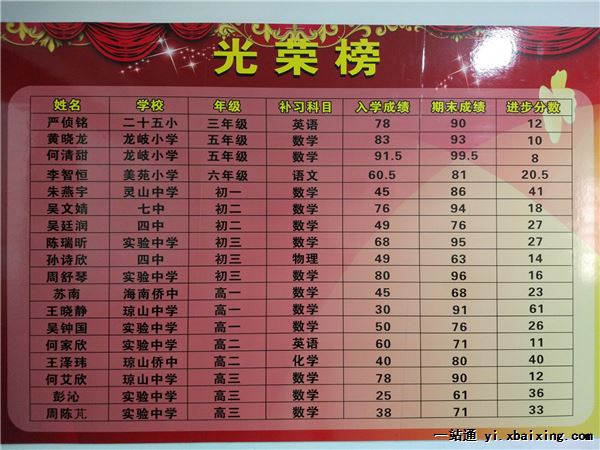 光荣榜
姓名 学校 年级 补习科目 入学成绩 期末成绩 进步分数
严侦铭 二十五小 三年级 英语 78 90 12
黄晓龙 龙岐小学 五年级 数学 83 93 10
何清甜 龙岐小学 五年级 数学 91.5 99.5 8
李智恒 美苑小学 六年级 语文 60.5 81 20.5
朱燕宇 灵山中学 初一 数学 45 86 41
吴文婧 七中 初二 数学 76 94 18
吴廷润 四中 初二 数学 49 76 27
陈瑞昕 实验中学 初三 数学 68 95 27
孙诗欣 四中 初三 物理 49 63 14
周舒琴 实验中学 初三 数学 80 96 16
苏南 海南侨中 高一 数学 45 68 23
王晓静 琼山中学 高一 数学 30 91 61
吴钟国 实验中学 高一 数学 50 76 26
何家欣 实验中学 高二 英语 60 71 11
王泽玮 琼山侨中 高二 化学 40 80 40
何艾欣 琼山中学 高三 数学 78 90 12
彭沁 实验中学 高三 数学 25 61 36
周陈芃 实验中学 高三 数学 38 71 33
一站通 yi.xbaixing.com